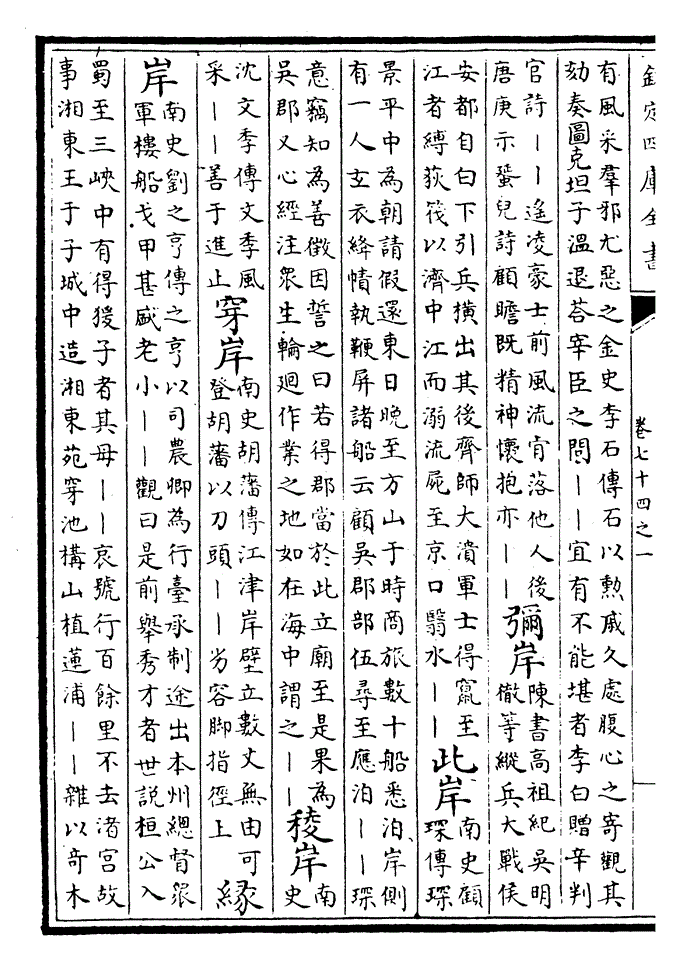 欽定四庫全書
卷七十四之一
有風采羣邪尤惡之金史李石傳石以勲戚久處腹心之寄觀其
劾奏圖克坦子溫退荅宰臣之問丨丨宜有不能堪者李白贈辛判
官詩丨丨遙凌豪士前風流肎落他人後
唐庚示蛩兒詩顧瞻既精神懷抱亦丨丨
彌岸
陳書高祖紀吳明
徹等縱兵大戰侯
安都自白下引兵橫出其後齊師大潰軍士得竄至
江者縛荻筏以濟中江而溺流屍至京口翳水丨丨
此岸
南史顧
琛傳琛
景平中為朝請假還東日晚至方山于時商旅數十船悉泊岸側
有一人玄衣絳幘執鞭屏諸船云顧吳郡部伍尋至應泊丨丨琛
意竊知為善徵因誓之曰若得郡當於此立廟至是果為
吳郡又心經注眾生輪廻作業之地如在海中謂之丨丨
稜岸
南
史
沈文季傳文季風
采丨丨善于進止
穿岸
南史胡藩傳江津岸壁立數丈無由可
登胡藩以刀頭丨丨劣容脚指徑上
緣
岸
南史劉之亨傳之亨以司農卿為行臺承制途出本州總督眾
軍樓船戈甲甚盛老小丨丨觀曰是前舉秀才者世説桓公入
蜀至三峽中有得猨子者其母丨丨哀號行百餘里不去渚宫故
事湘東王于子城中造湘東苑穿池構山植蓮浦丨丨雜以奇木